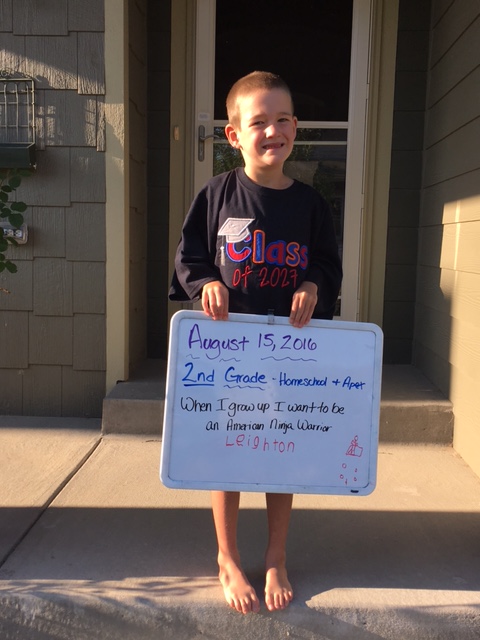 Class
of 2027
August 15, 2016
2nd Grade - Homeschool + Apex
When I grow up I want to be
an American Ninja Warrior
Leighton